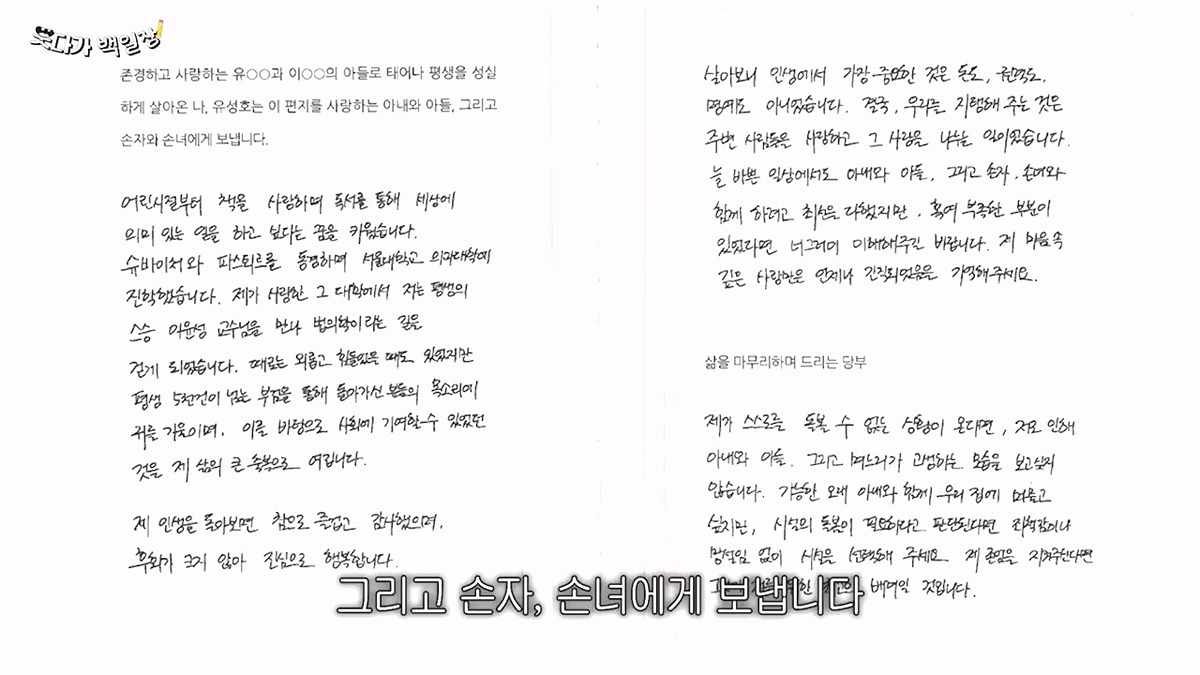 웃다가 백일장
존경하고 사랑하는 유○○과 이○○의 아들로 태어나 평생을 성실
하게 살아온 나, 유성호는 이 편지를 사랑하는 아내와 아들, 그리고
손자와 손녀에게 보냅니다.
어린시절부터 책을 사랑하며 독서를 통해 세상에
의미 있는 일을 하고 싶다는 꿈을 키웠습니다.
슈바이처와 파스퇴르를 동경하며 서울대학교 의과대학에
진학했습니다. 제가 사랑한 그 대학에서 저는 평생의
스승 이윤성 교수님을 만나 법의학이라는 길을
걷게 되었습니다. 때로는 외롭고 힘들었을 때도 있었지만
평생 5천건이 넘는 부검을 통해 돌아가신 분들의 목소리에
귀를 기울이며, 이를 바탕으로 사회에 기여할 수 있었던
것을 제 삶의 큰 축복으로 여깁니다.
제 인생을 돌아보면 참으로 즐겁고 감사했으며,
후회가 크지 않아 진심으로 행복합니다.
살아보니 인생에서 가장 중요한 것은 돈도, 권력도,
명예도 아니었습니다. 결국, 우리를 지탱해 주는 것은
주변 사람들을 사랑하고 그 사랑을 나누는 일이었습니다.
늘 바쁜 일상에서도 아내와 아들, 그리고 손자, 손녀와
함께 하려고 최선을 다했지만, 혹여 부족한 부분이
있었다면 너그러이 이해해주길 바랍니다. 제 마음 속
깊은 사랑만은 언제나 간직되었음을 기억해주세요.
삶을 마무리하며 드리는 당부
제가 스스로를 돌볼 수 없는 상황이 온다면, 저로 인해
아내와 아들, 그리고 며느리가 고생하는 모습을 보고싶지
않습니다. 가능한 오래 아내와 함께 우리 집에 머물고
싶지만, 시설의 돌봄이 필요하다고 판단된다면 죄책감이나
망설임 없이 시설을 선택해 주세요. 제 존엄을 지켜주신다면
배려일 것입니다.
그리고 손자, 손녀에게 보냅니다